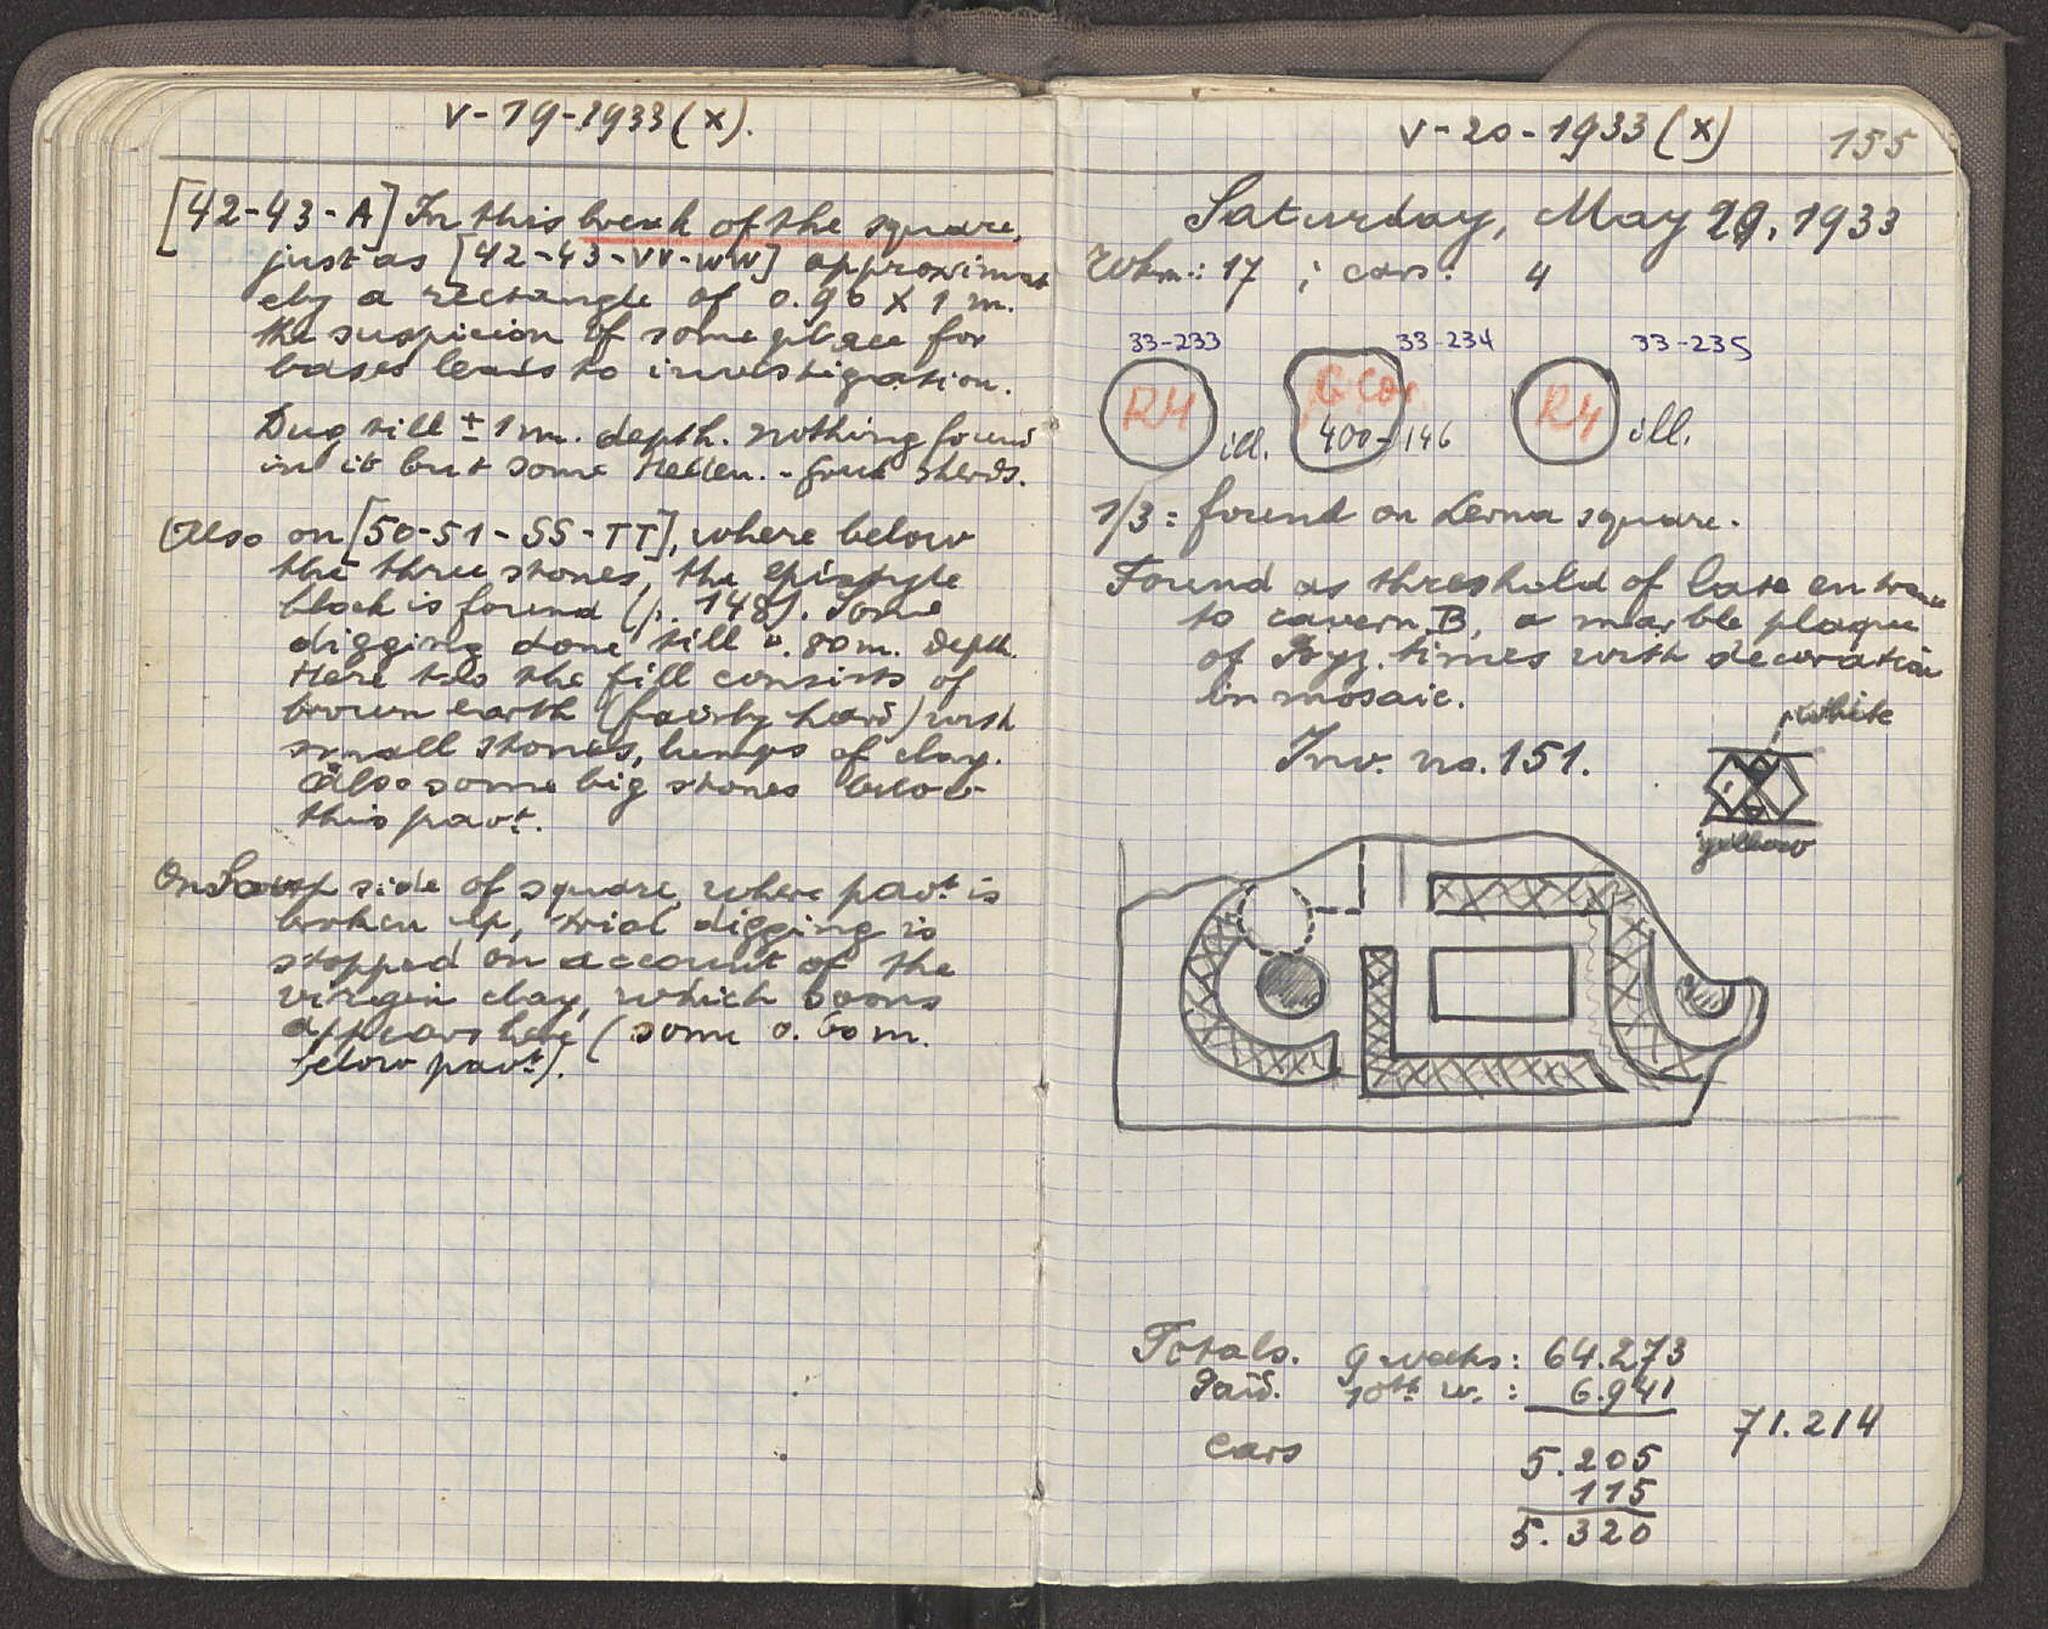 V-19-1933 (X).
[42-43-A] In this break of the square,
just as [42-43-VV-WW] approximat
ely a rectangle of 0.90 X 1 m.
the suspicion of some place for
bases leads to investigation.
Dug till ± 1 m. depth. nothing found
in it but some Hellen. - Greek sherds.
Also on [50-51-SS-TT], where below
the three stones, the epistyle
block is found (p. 148). Some
digging done till 0.80 m. depth.
Here too the fill consists of
brown earth (fairly hard) with
small stones, lumps of clay.
Also some big stones below
this pavt.
On South side of square, where pavt is
broken up, trial digging is
stopped on account of the
virgin clay, which soons
appears here (some 0.60 m.
below pavt).
V-20-1933 (X)
155
Saturday, May 20, 1933
Wkm.: 17 ; cars: 4
33-233 33-234 33-235
R4 ill. G Cor 400-146 R4 ill.
1/3 = found on Lerna square.
Found as threshold of late entrance
to cavern B, a marble plaque
of Byz. times with decoration
in mosaic.
white
Inv. no. 151.
yellow
Totals. 9 weeks: 64.273
Paid. 10th w. : 6.941
71.214
Cars 5.205
115
5.320